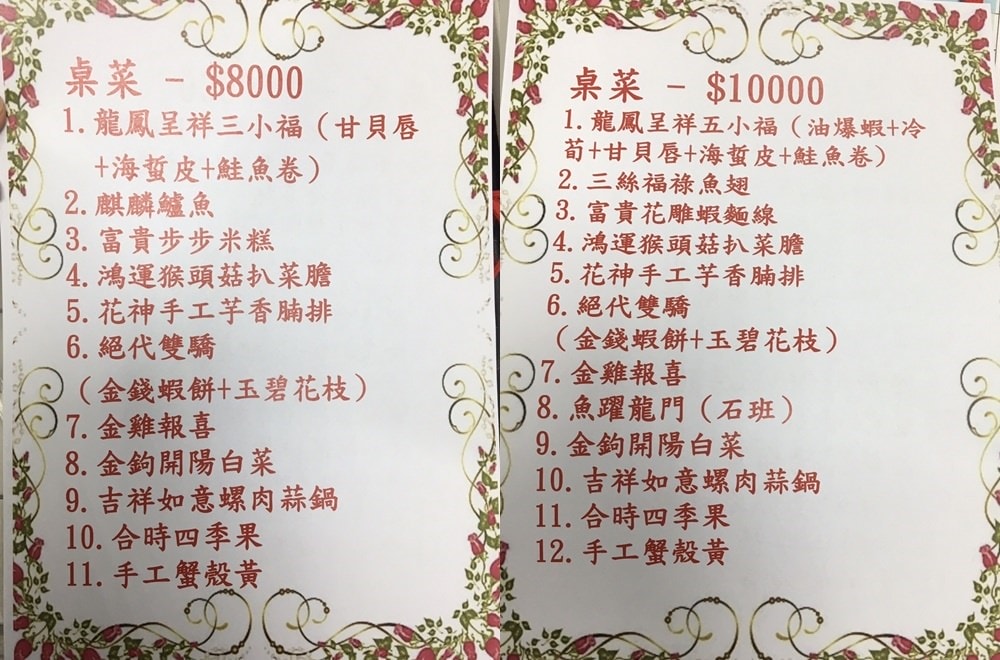 桌菜 - $8000
1. 龍鳳呈祥三小福（甘貝唇
+海蜇皮+鮭魚卷）
2. 麒麟鱸魚
3. 富貴步步米糕
4. 鴻運猴頭菇扒菜膽
5. 花神手工芋香腩排
6. 絕代雙驕
（金錢蝦餅+玉碧花枝）
7. 金雞報喜
8. 金鉤開陽白菜
9. 吉祥如意螺肉蒜鍋
10. 合時四季果
11. 手工蟹殼黃
桌菜 - $10000
1. 龍鳳呈祥五小福（油爆蝦+冷
筍+甘貝唇+海蜇皮+鮭魚卷）
2. 三絲福祿魚翅
3. 富貴花雕蝦麵線
4. 鴻運猴頭菇扒菜膽
5. 花神手工芋香腩排
6. 絕代雙驕
（金錢蝦餅+玉碧花枝）
7. 金雞報喜
8. 魚躍龍門（石班）
9. 金鉤開陽白菜
10. 吉祥如意螺肉蒜鍋
11. 合時四季果
12. 手工蟹殼黃